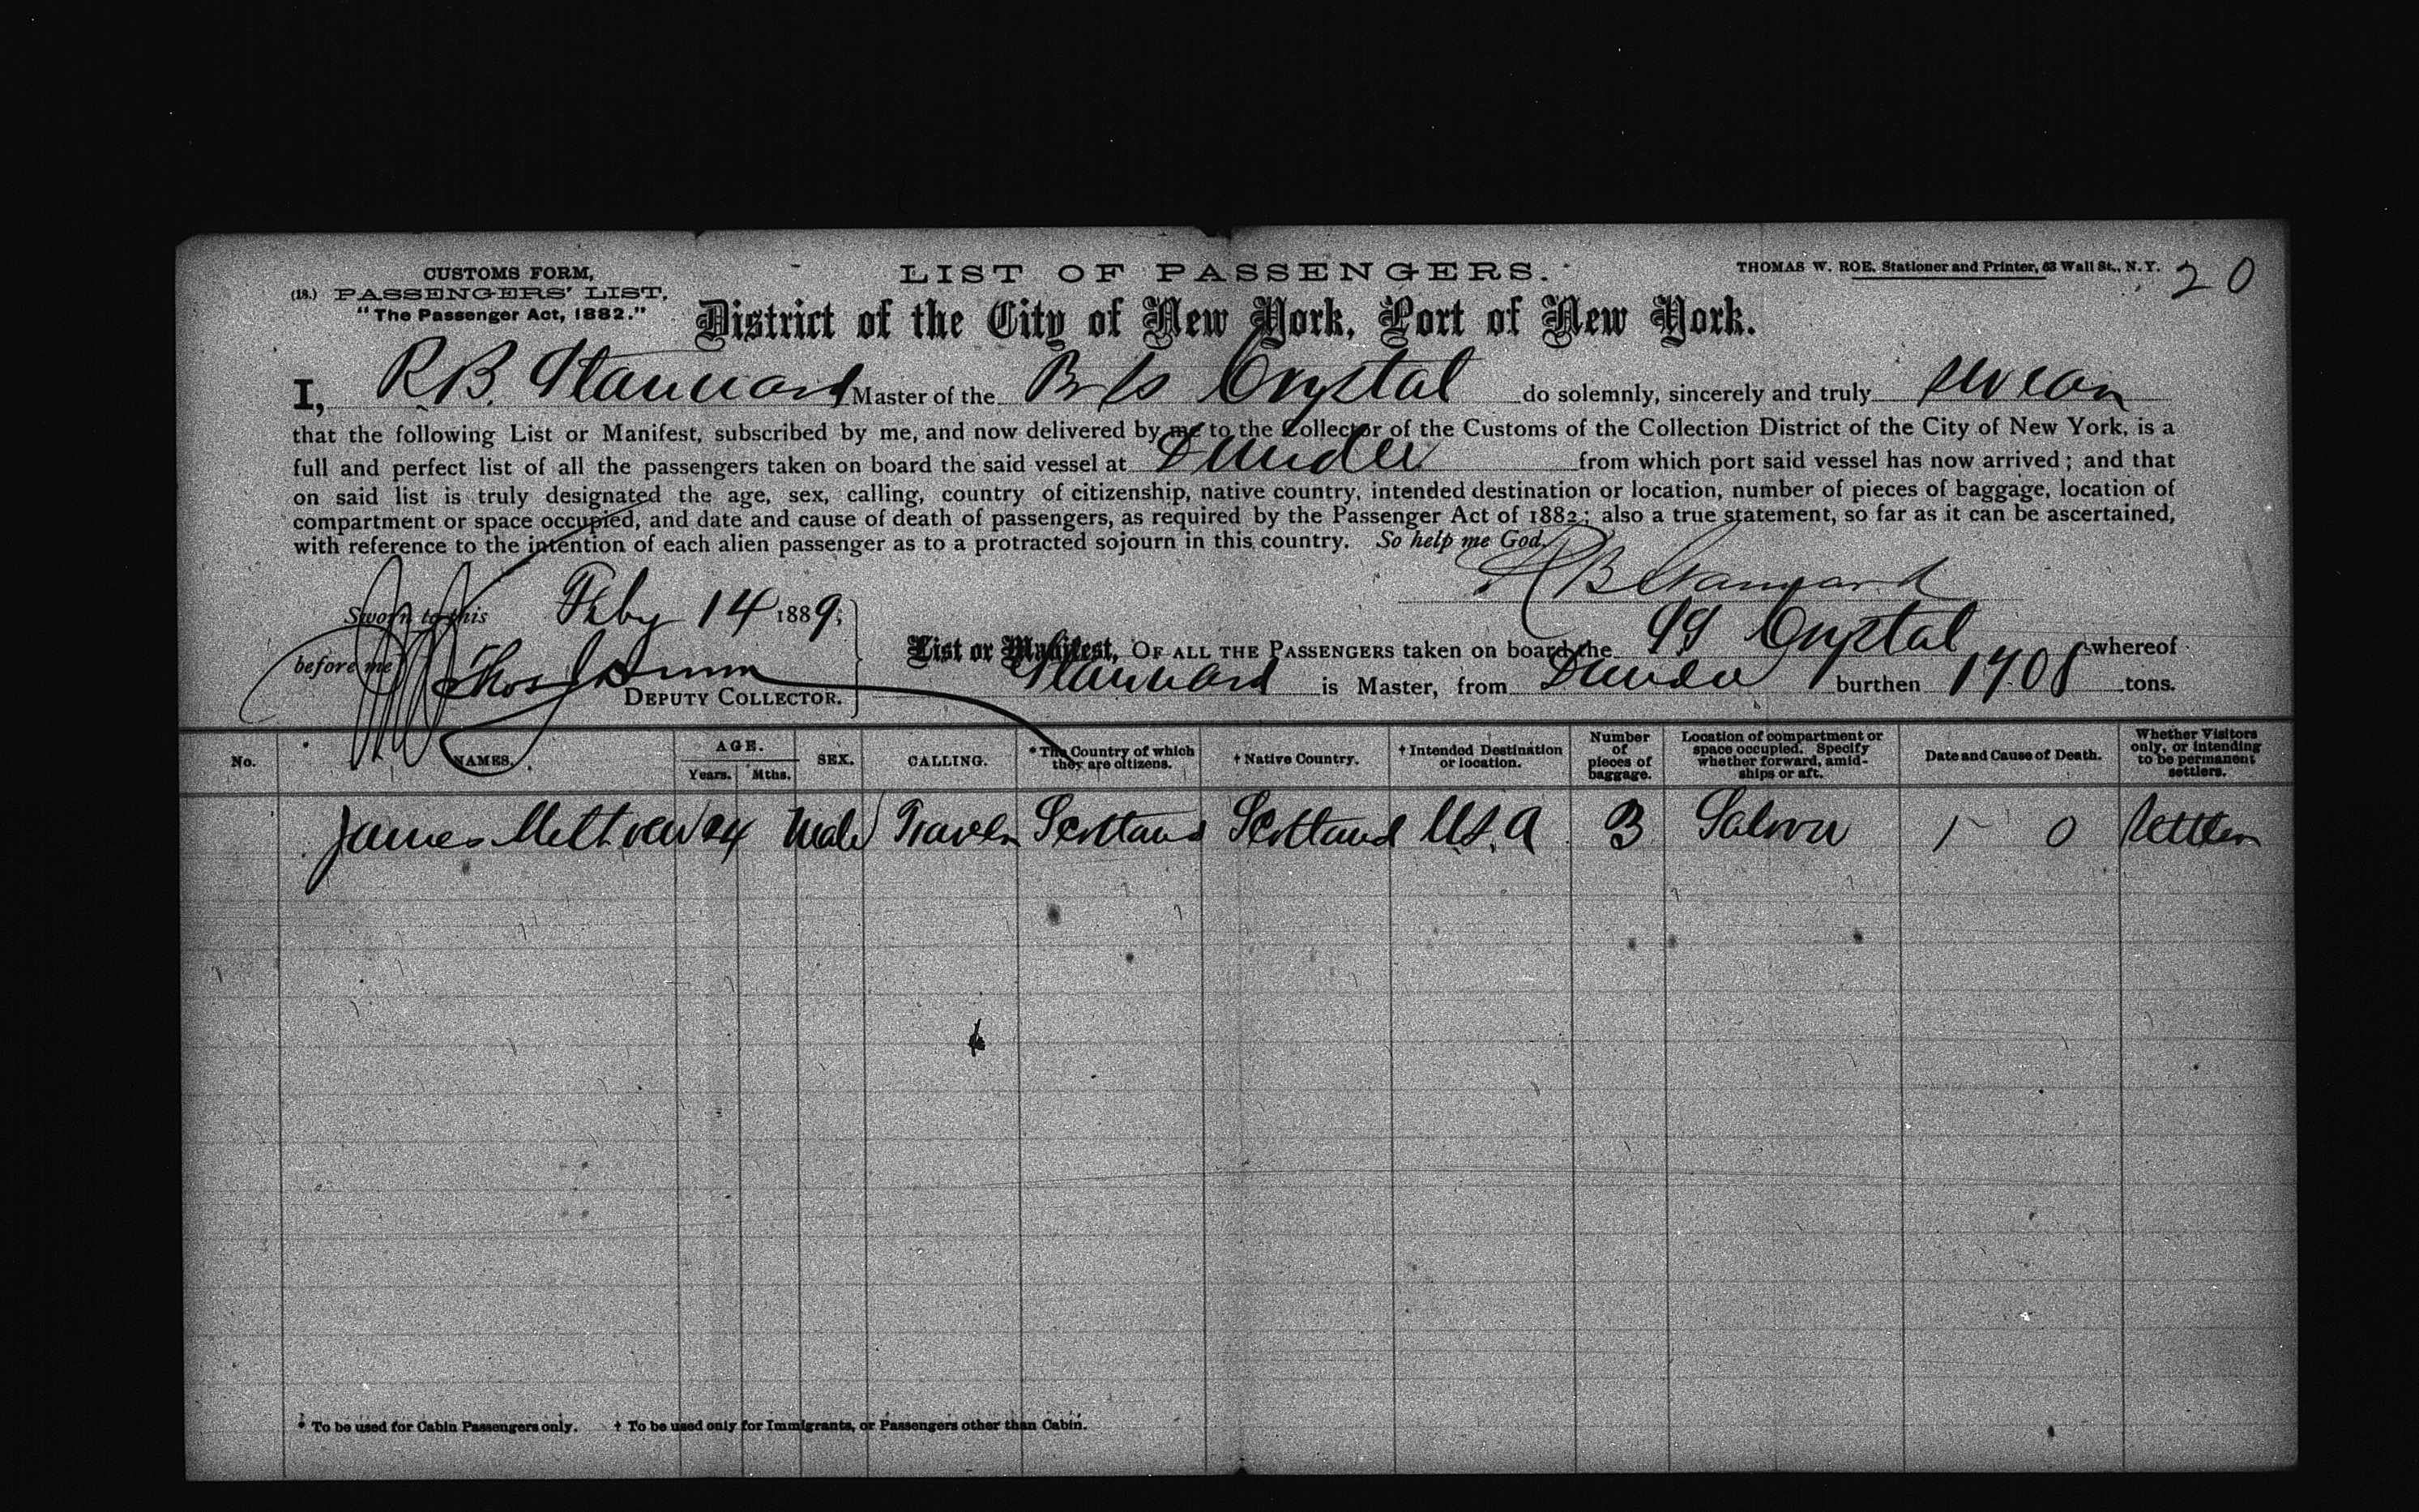 CUSTOMS FORM,
(18.) PASSENGERS' LIST,
"The Passenger Act, 1882."
LIST OF PASSENGERS.
THOMAS W. ROE, Stationer and Printer, 63 Wall St., N.Y.
20
District of the City of New York, Port of New York.
I, R.B. Stannard Master of the Br Ss Crystal do solemnly, sincerely and truly swear
that the following List or Manifest, subscribed by me, and now delivered by me to the Collector of the Customs of the Collection District of the City of New York, is a
full and perfect list of all the passengers taken on board the said vessel at Dundee from which port said vessel has now arrived; and that
on said list is truly designated the age, sex, calling, country of citizenship, native country, intended destination or location, number of pieces of baggage, location of
compartment or space occupied, and date and cause of death of passengers, as required by the Passenger Act of 1882; also a true statement, so far as it can be ascertained,
with reference to the intention of each alien passenger as to a protracted sojourn in this country. So help me God.
R B Stannard
Sworn to this Feby 14 1889;
before me Thos
DEPUTY COLLECTOR.
List or Manifest, OF ALL THE PASSENGERS taken on board the SS Crystal whereof
Stannard is Master, from Dundee burthen 1708 tons.
No. NAMES. AGE. Years. Mths. SEX. CALLING. * The Country of which they are citizens. † Native Country. † Intended Destination or location. Number of pieces of baggage. Location of compartment or space occupied. Specify whether forward, amidships or aft. Date and Cause of Death. Whether Visitors only, or intending to be permanent settlers.
James 24 Male Scotland Scotland U.S.A 3 Saloon 0 Settler
* To be used for Cabin Passengers only. † To be used only for Immigrants, or Passengers other than Cabin.